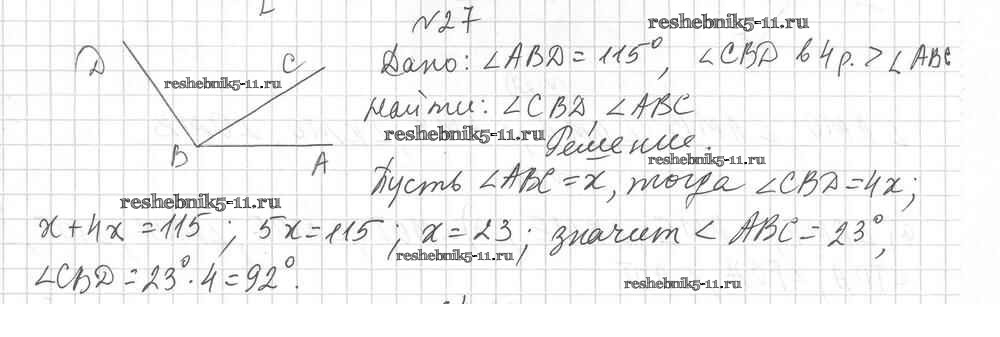 №27
reshebnik5-11.ru
Дано: ∠ABD = 115°, ∠CBD в 4 р. > ∠ABC
D
C
reshebnik5-11.ru
Найти: ∠CBD, ∠ABC
reshebnik5-11.ru
Решение.
B
A
reshebnik5-11.ru
Пусть ∠ABC = x, тогда ∠CBD = 4x;
reshebnik5-11.ru
x + 4x = 115; 5x = 115; x = 23; значит ∠ ABC = 23°,
reshebnik5-11.ru
∠CBD = 23° · 4 = 92°.
reshebnik5-11.ru